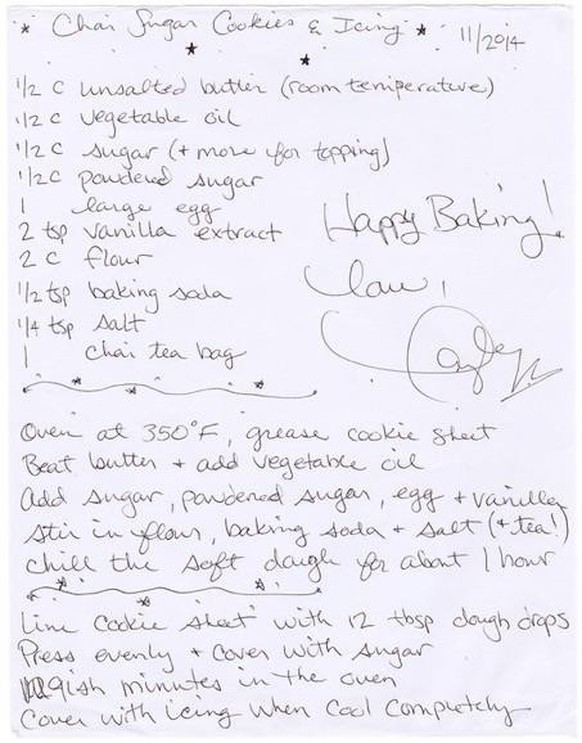 * Chai Sugar Cookies & Icing * 11/2014
1/2 c unsalted butter (room temperature)
1/2 c vegetable oil
1/2 c sugar (+ more for topping)
1/2 c powdered sugar
1 large egg
2 tsp vanilla extract
2 c flour
1/2 tsp baking soda
1/4 tsp salt
1 chai tea bag
Happy Baking!
Oven at 350°F, grease cookie sheet
Beat butter + add vegetable oil
Add sugar, powdered sugar, egg + vanilla
Stir in flour, baking soda + salt (+ tea!)
Chill the soft dough for about 1 hour
Line cookie sheet with 12 tbsp dough drops
Press evenly + cover with sugar
9ish minutes in the oven
Cover with icing when cool completely